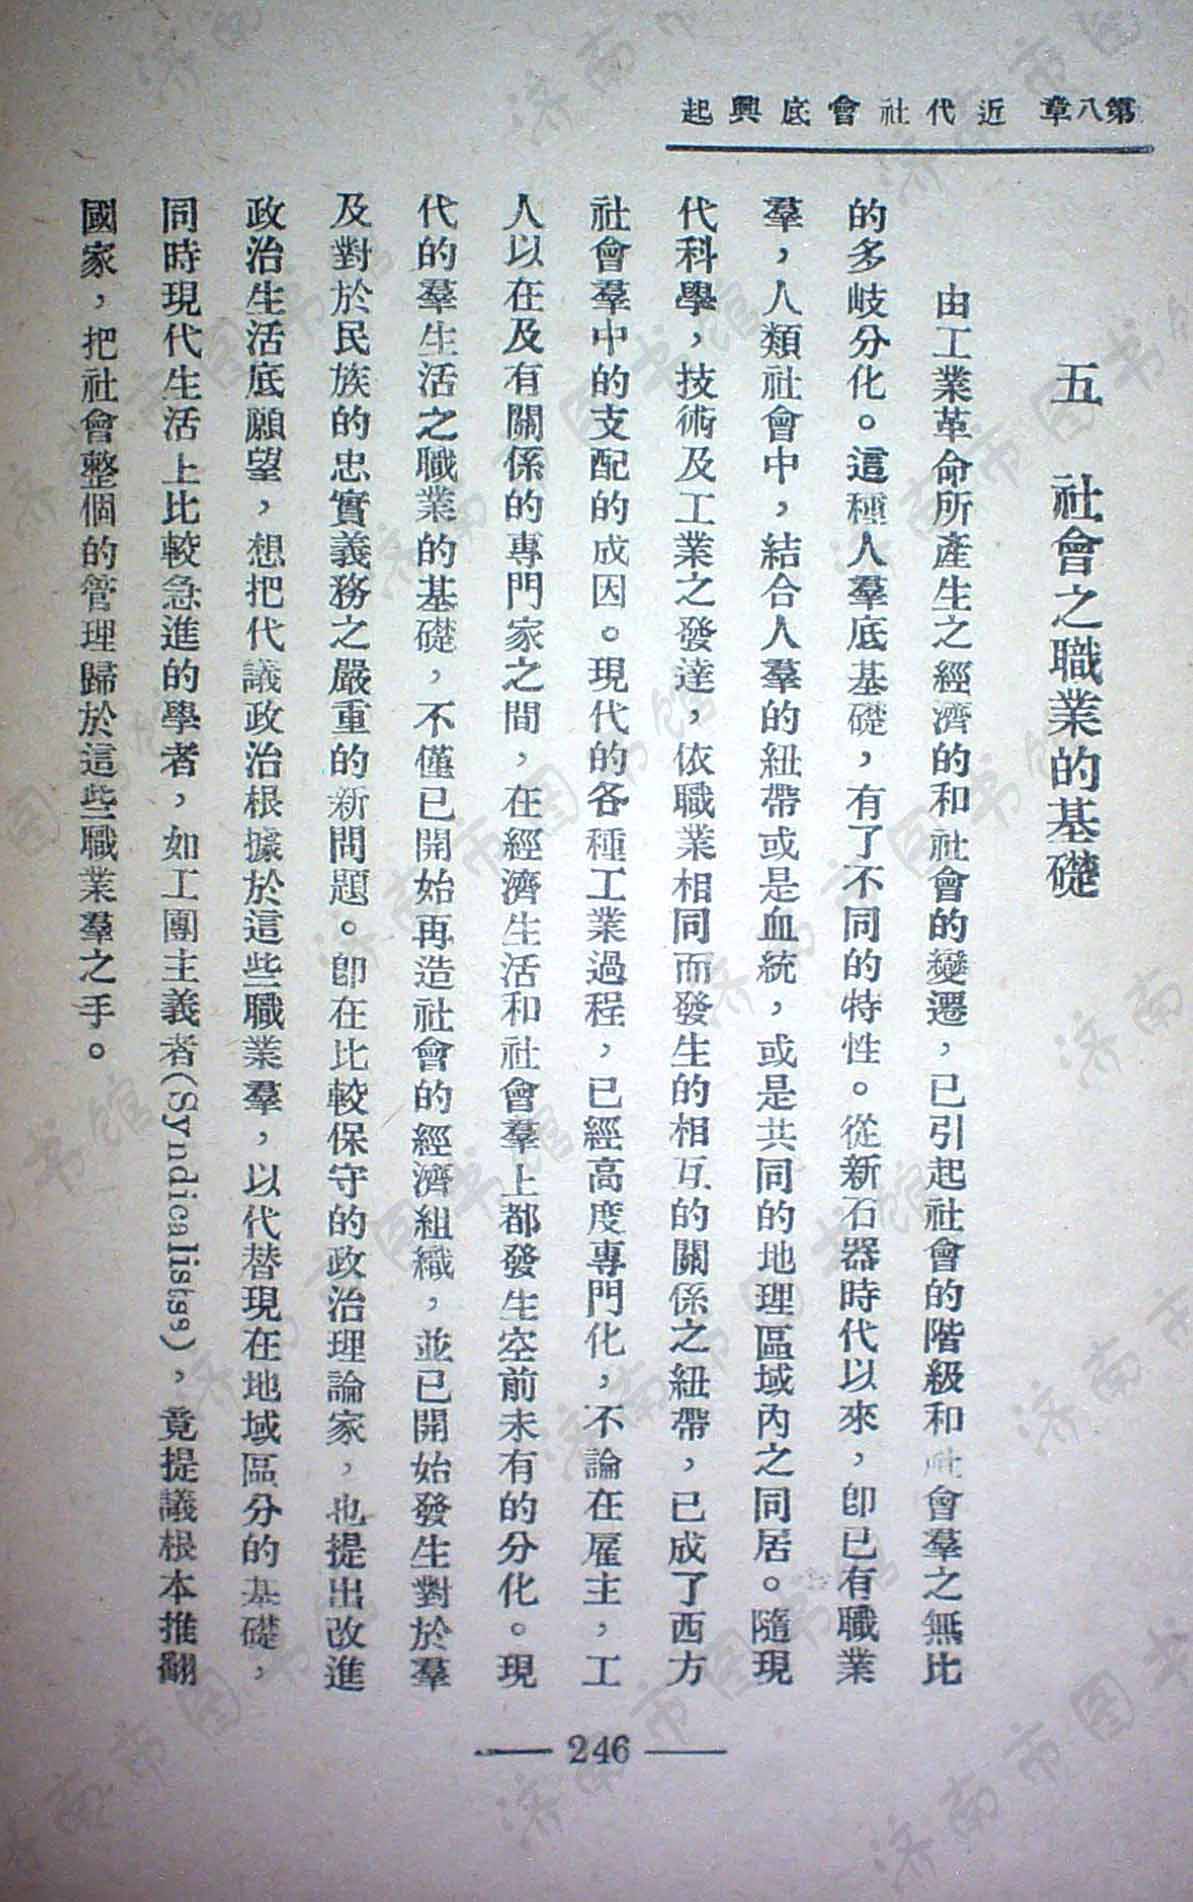 第八章 近代社會底興起
五 社會之職業的基礎
由工業革命所產生之經濟的和社會的變遷，已引起社會的階級和社會羣之無比
的多岐分化。這種人羣底基礎，有了不同的特性。從新石器時代以來，卽已有職業
羣，人類社會中，結合人羣的紐帶或是血統，或是共同的地理區域內之同居。隨現
代科學，技術及工業之發達，依職業相同而發生的相互的關係之紐帶，已成了西方
社會羣中的支配的成因。現代的各種工業過程，已經高度專門化，不論在雇主，工
人以在及有關係的專門家之間，在經濟生活和社會羣上都發生空前未有的分化。現
代的羣生活之職業的基礎，不僅已開始再造社會的經濟組織，並已開始發生對於羣
及對於民族的忠實義務之嚴重的新問題。卽在比較保守的政治理論家，也提出改進
政治生活底願望，想把代議政治根據於這些職業羣，以代替現在地域區分的基礎，
同時現代生活上比較急進的學者，如工團主義者(Syndicalists⁹)，竟提議根本推翻
國家，把社會整個的管理歸於這些職業羣之手。
— 246 —
济南市图书馆